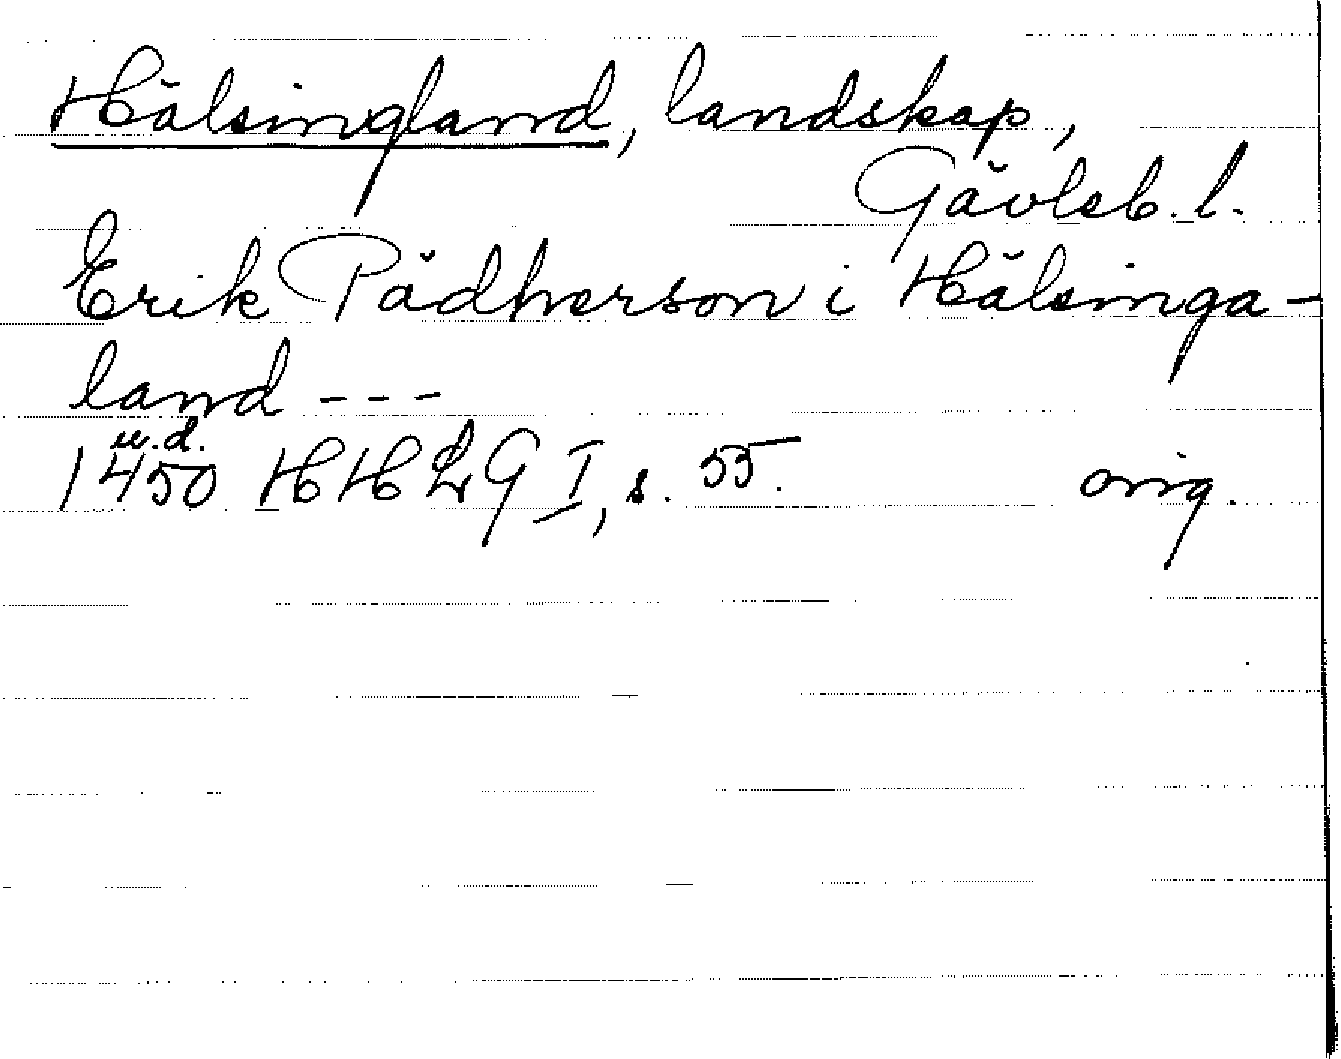 Hälsingland, landskap,
Gävleb. l.
Erik Pädherson i Hälsinga-
land ---
u.d.
1450 HHLG I, s. 55. orig.